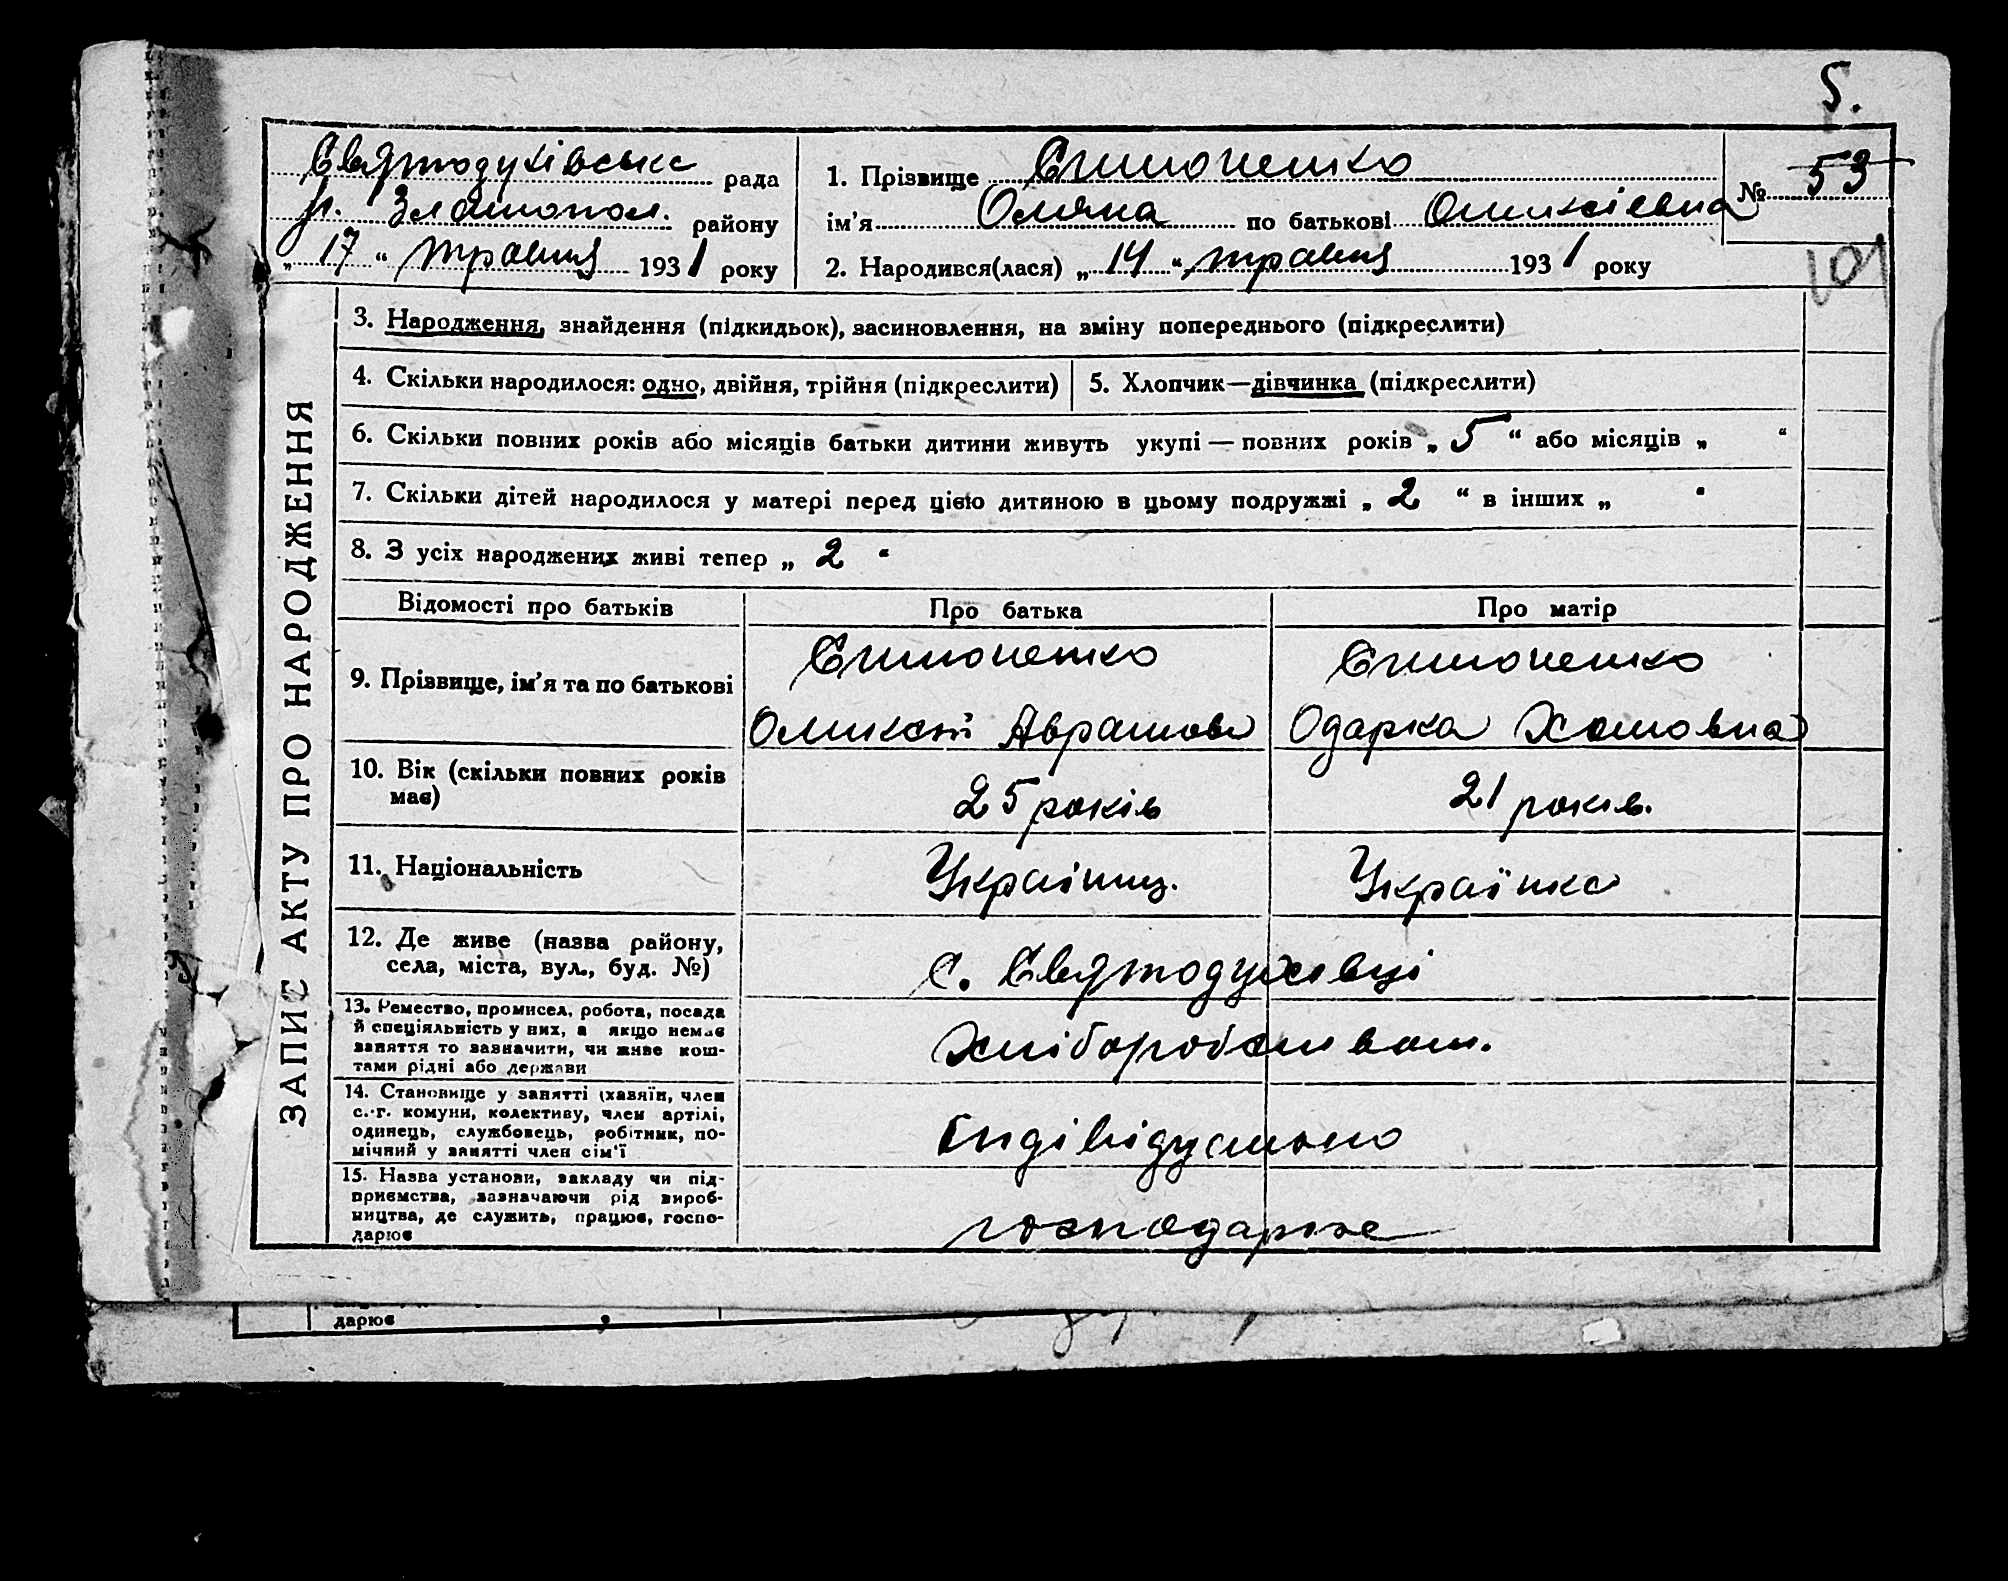 5.
Святодухівська рада
р. Златопол. району
„ 17 “ травня 1931 року
1. Прізвище Симоненко
ім'я Оляна по батькові Оликсіевна
2. Народився(лася) „ 14 “ травня 1931 року
№ 53
101
ЗАПИС АКТУ ПРО НАРОДЖЕННЯ
3. Народження, знайдення (підкидьок), засиновлення, на зміну попереднього (підкреслити)
4. Скільки народилося: одно, двійня, трійня (підкреслити)
5. Хлопчик—дівчинка (підкреслити)
6. Скільки повних років або місяців батьки дитини живуть укупі — повних років „ 5 “ або місяців „ “
7. Скільки дітей народилося у матері перед цією дитиною в цьому подружжі „ 2 “ в інших „ “
8. З усіх народжених живі тепер „ 2 “
Відомості про батьків
Про батька
Про матір
9. Прізвище, ім'я та по батькові
Симоненко
Оликсій Аврамов
Симоненко
Одарка Хомовна
10. Вік (скільки повних років
має)
25 років
21 років.
11. Національність
Українц.
Українка
12. Де живе (назва району,
села, міста, вул., буд. №)
с. Святодухівці
13. Ремество, промисел, робота, посада
й спеціяльність у них, а якщо немає
заняття то зазначити, чи живе кош-
тами рідні або держави
Хліборобством.
14. Становище у занятті (хазяїн, член
с.-г. комуни, колективу, член артілі,
одинець, службовець, робітник, по-
мічний у занятті член сім'ї
Індівідуально
15. Назва установи, закладу чи під-
приємства, зазначаючи рід вироб-
ництва, де служить, працює, госпо-
дарює
господарює
дарює